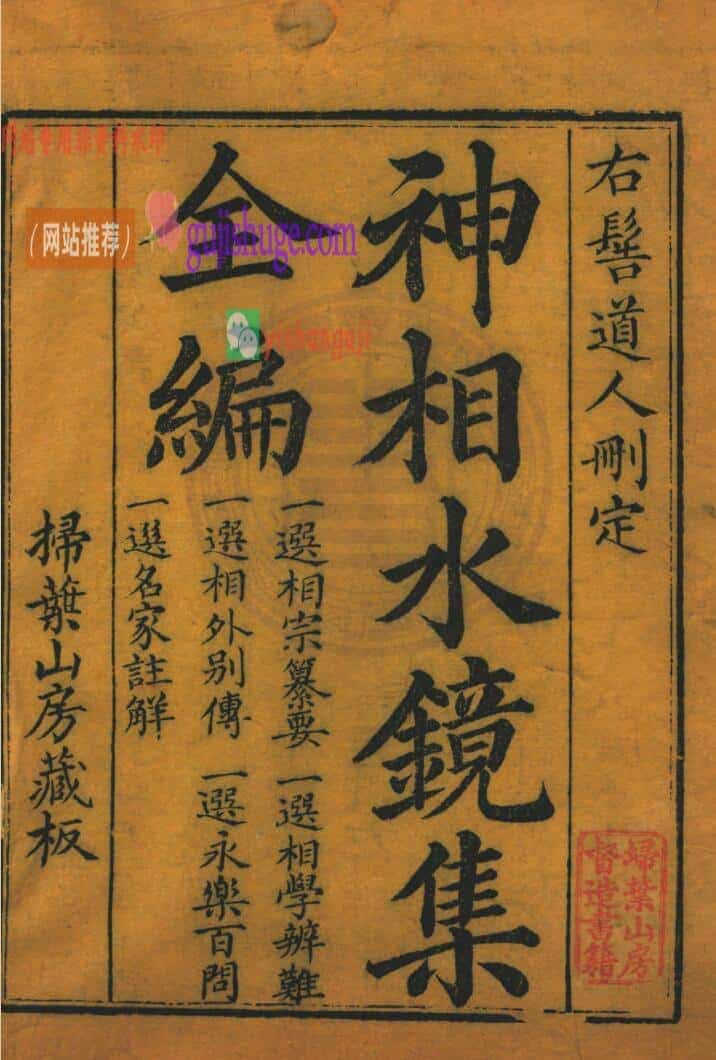 右髻道人刪定
神相水鏡集
全編
一選相宗纂要 一選相學辨難
一選相外别傳 一選永樂百問
一選名家註解
掃葉山房藏板
掃葉山房
督造書籍
(网站推荐)
gujishuge.com